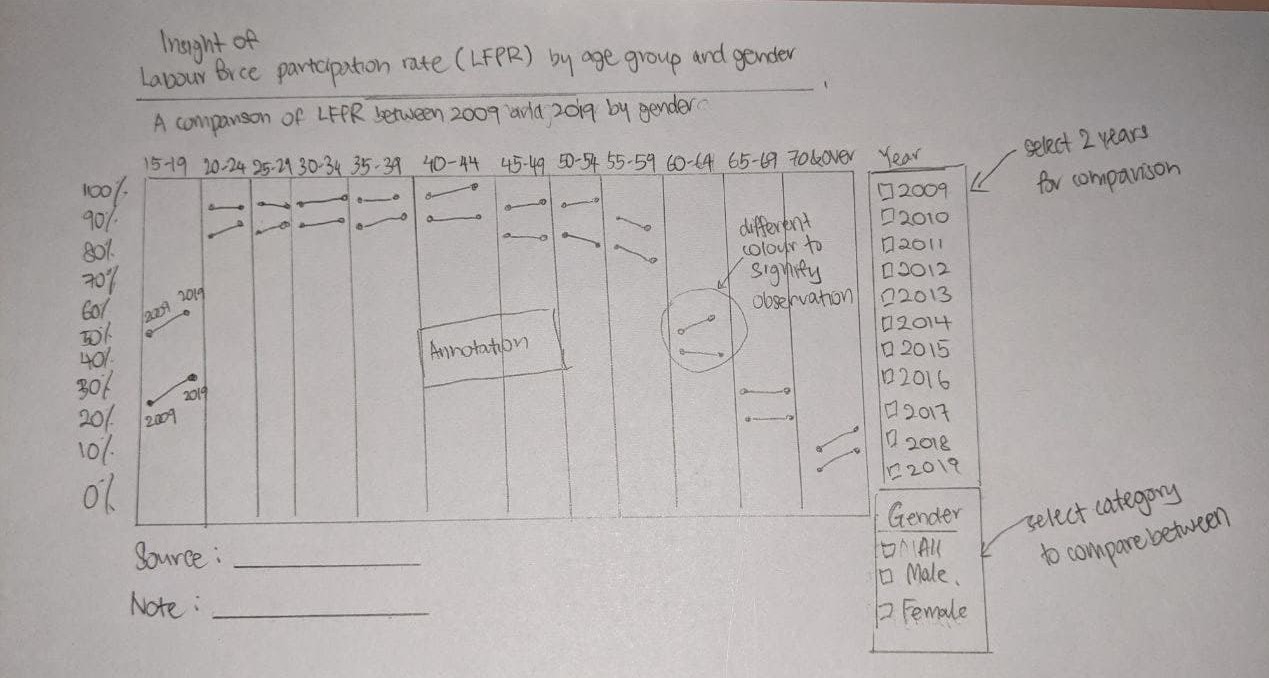 Insight of
Labour force participation rate (LFPR) by age group and gender
A comparison of LFPR between 2009 and 2019 by gender
15-19 20-24 25-29 30-34 35-39 40-44 45-49 50-54 55-59 60-64 65-69 70&over
100%
90%
80%
70%
60%
50%
40%
30%
20%
10%
0%
2009 2019
2009 2019
Annotation
different
colour to
signify
observation
Year
2009
2010
2011
2012
2013
2014
2015
2016
2017
2018
2019
select 2 years
for comparison
Gender
All
Male
Female
select category
to compare between
Source:
Note: